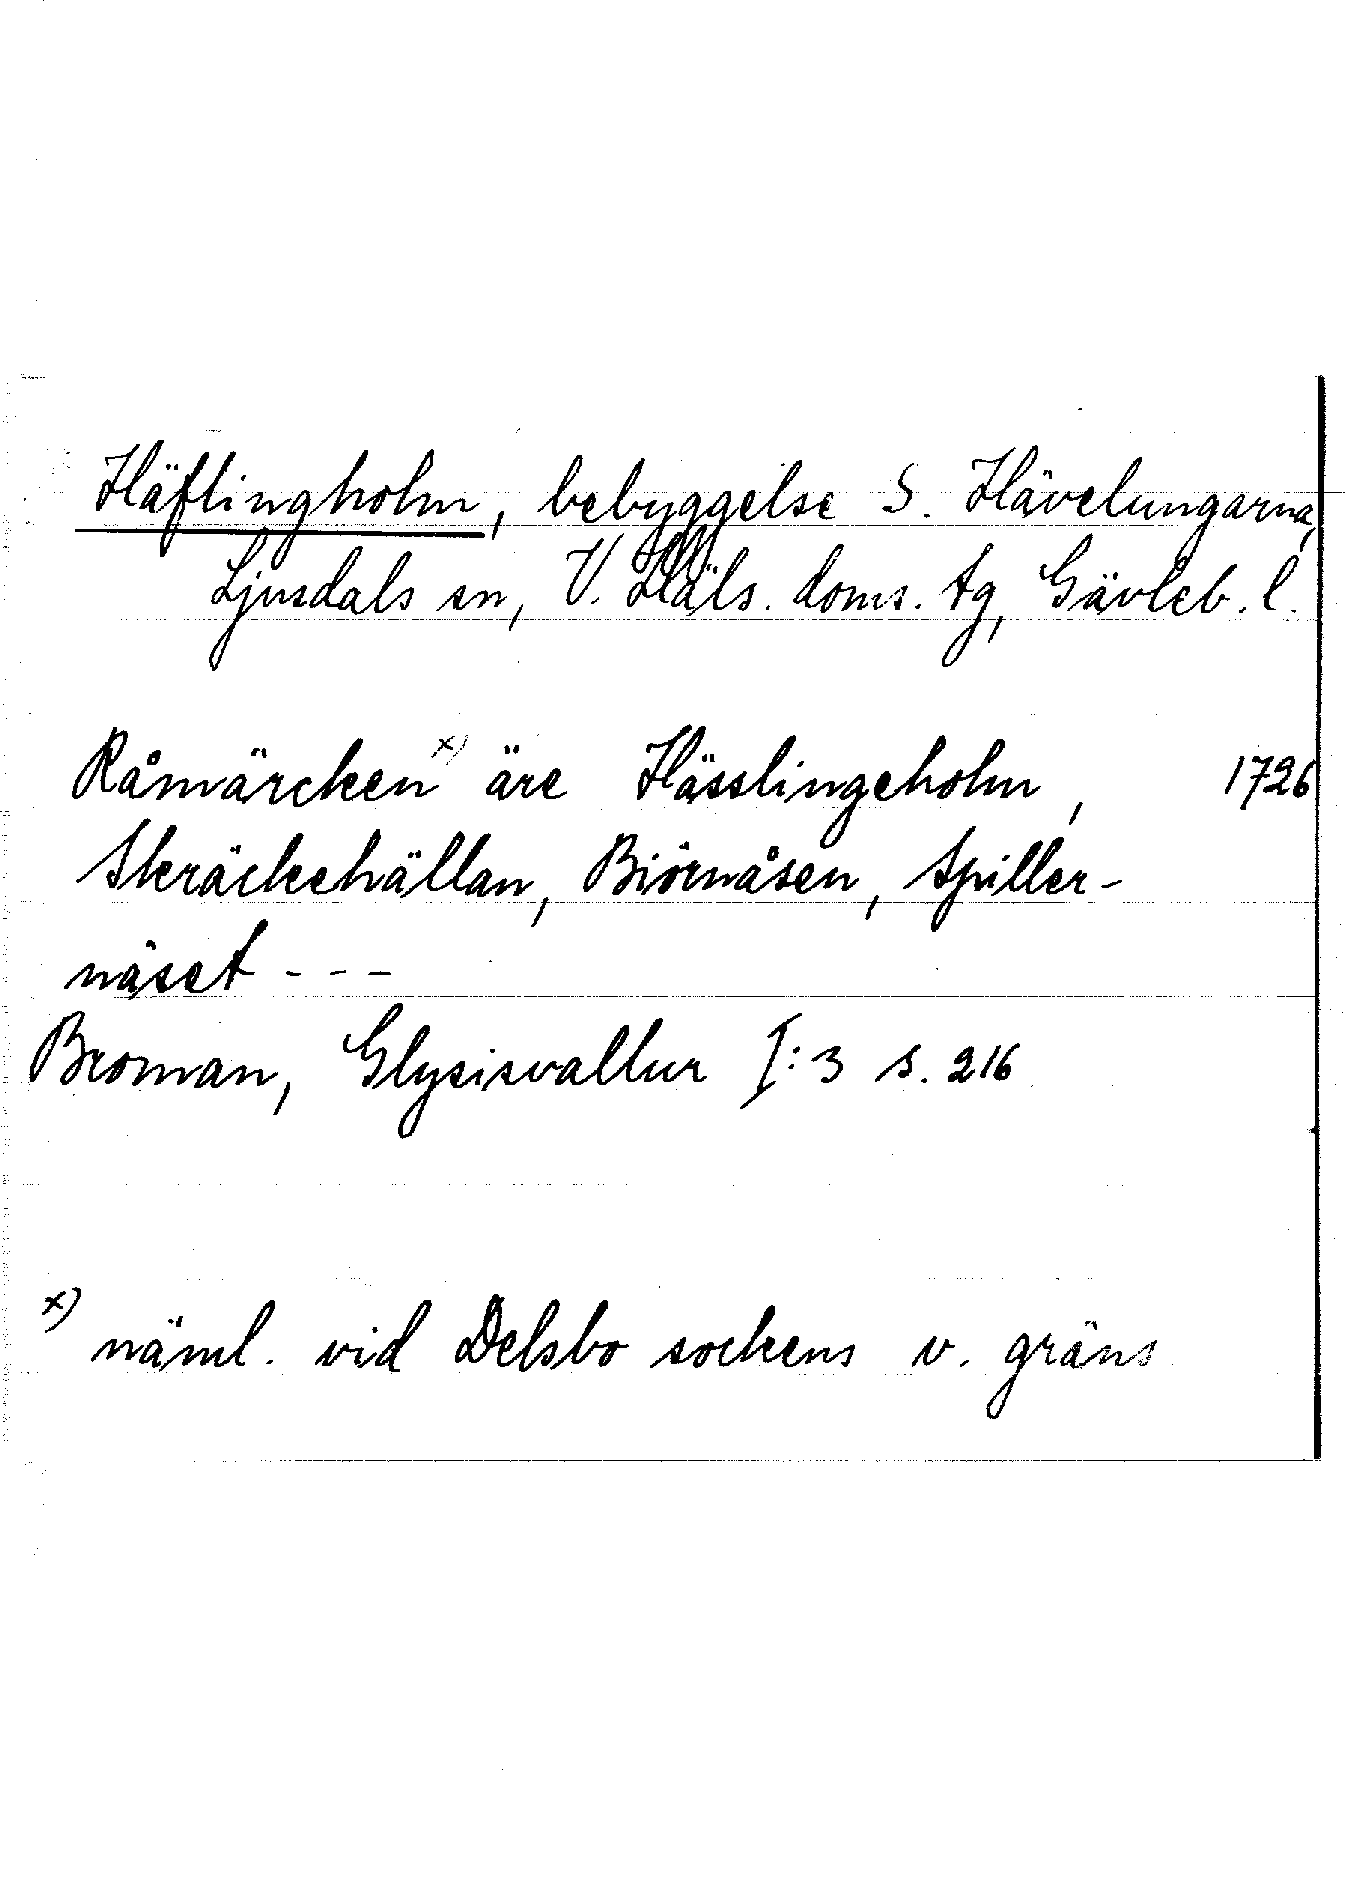 Häflingholm, bebyggelse S. Hävelungarna,
Ljusdals sn, V. Häls. doms. tg, Gävleb. l.
Råmärcken x) äre Hässlingeholm, 1726
Skräckehällan, Biörnåsen, Spiller-
näset - - -
Broman, Glysisvallur I:3 s. 216
x) näml. vid Delsbo sockens v. gräns